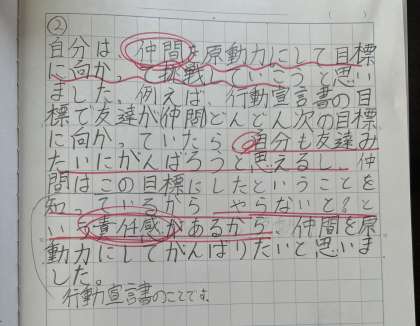 ②
自分は、仲間を原動力にして目標
に向かって挑戦していこうと思い
ました。例えば、行動宣言書の目
標で友達が仲間どんどん次の目標
に向かっていたら、自分も友達み
たいにがんばろうと思えるし、仲
間はこの目標にしたということを
知っているから、やらないと？と
いう責任感があるから、仲間を原
動力にしてがんばりたいと思いま
した。
行動宣言書のことです。